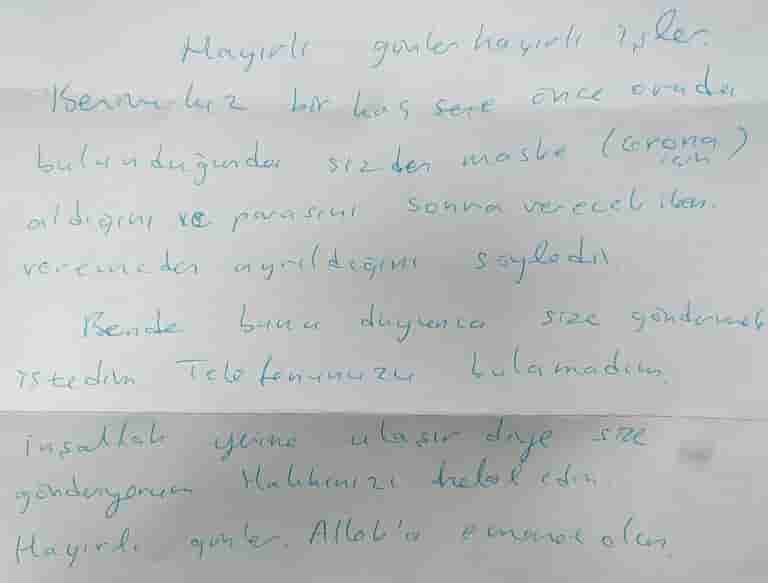 Hayırlı günler hayırlı işler.
Benim kız bir kaç sene önce orada
bulunduğunda sizden maske (corona için)
aldığını ve parasını sonra verecek iken.
veremeden ayrıldığını söyledi.
Bende bunu duyunca size göndermek
istedim Telefonunuzu bulamadım.
inşallah yerine ulaşır diye size
gönderiyorum Hakkınızı helal edin.
Hayırlı günler. Allah'a emanet olun.